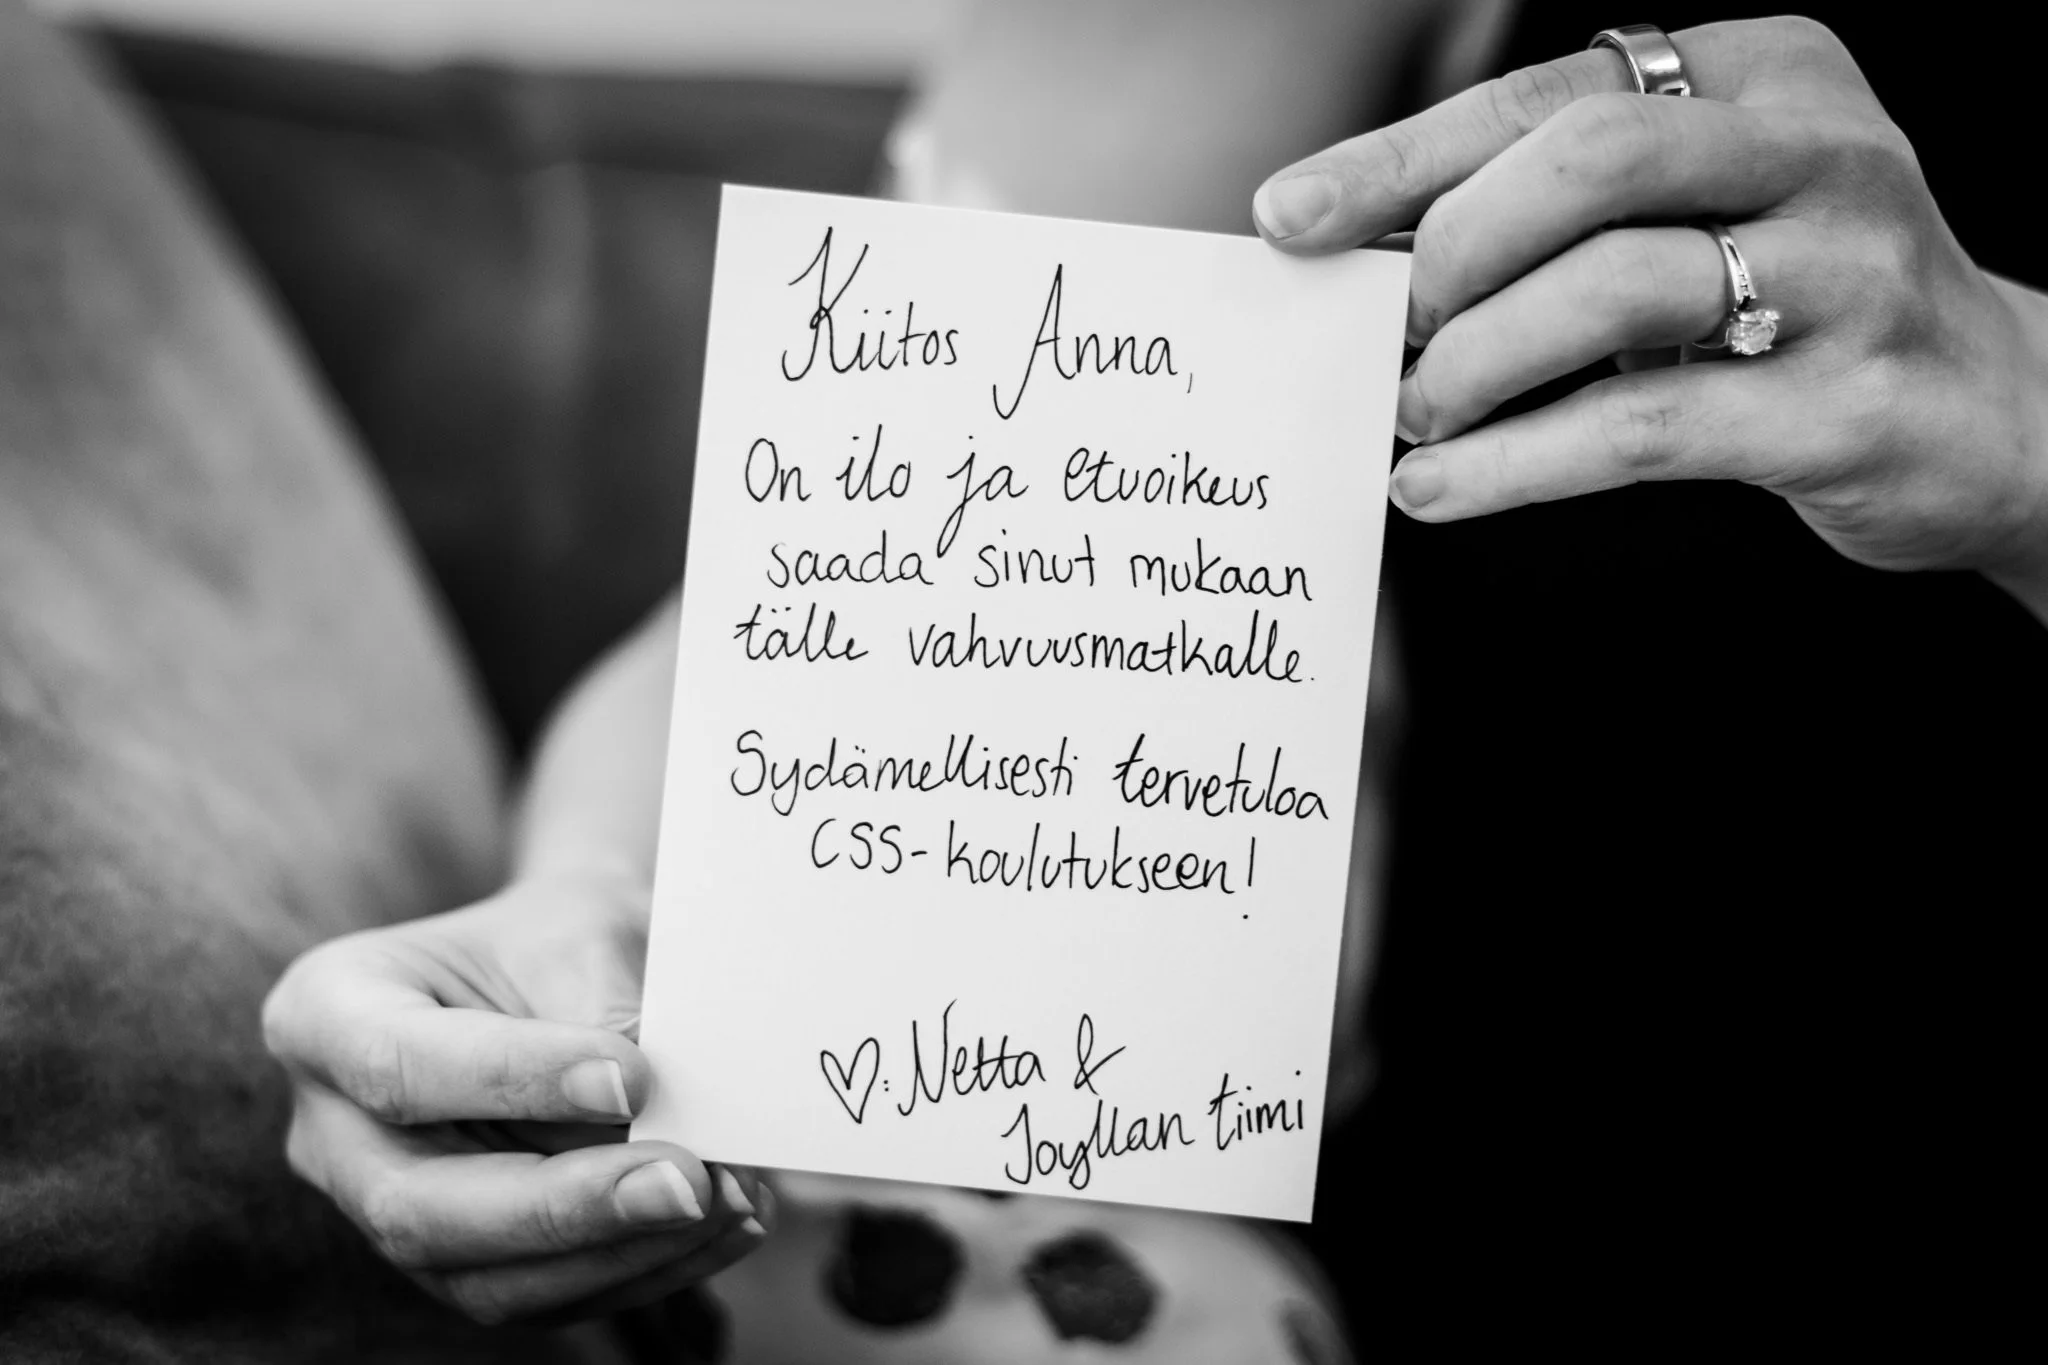 Kiitos Anna,
On ilo ja etuoikeus
saada sinut mukaan
tälle vahvuusmatkalle.
Sydämellisesti tervetuloa
CSS-koulutukseen!
♡: Netta &
Joyllan tiimi